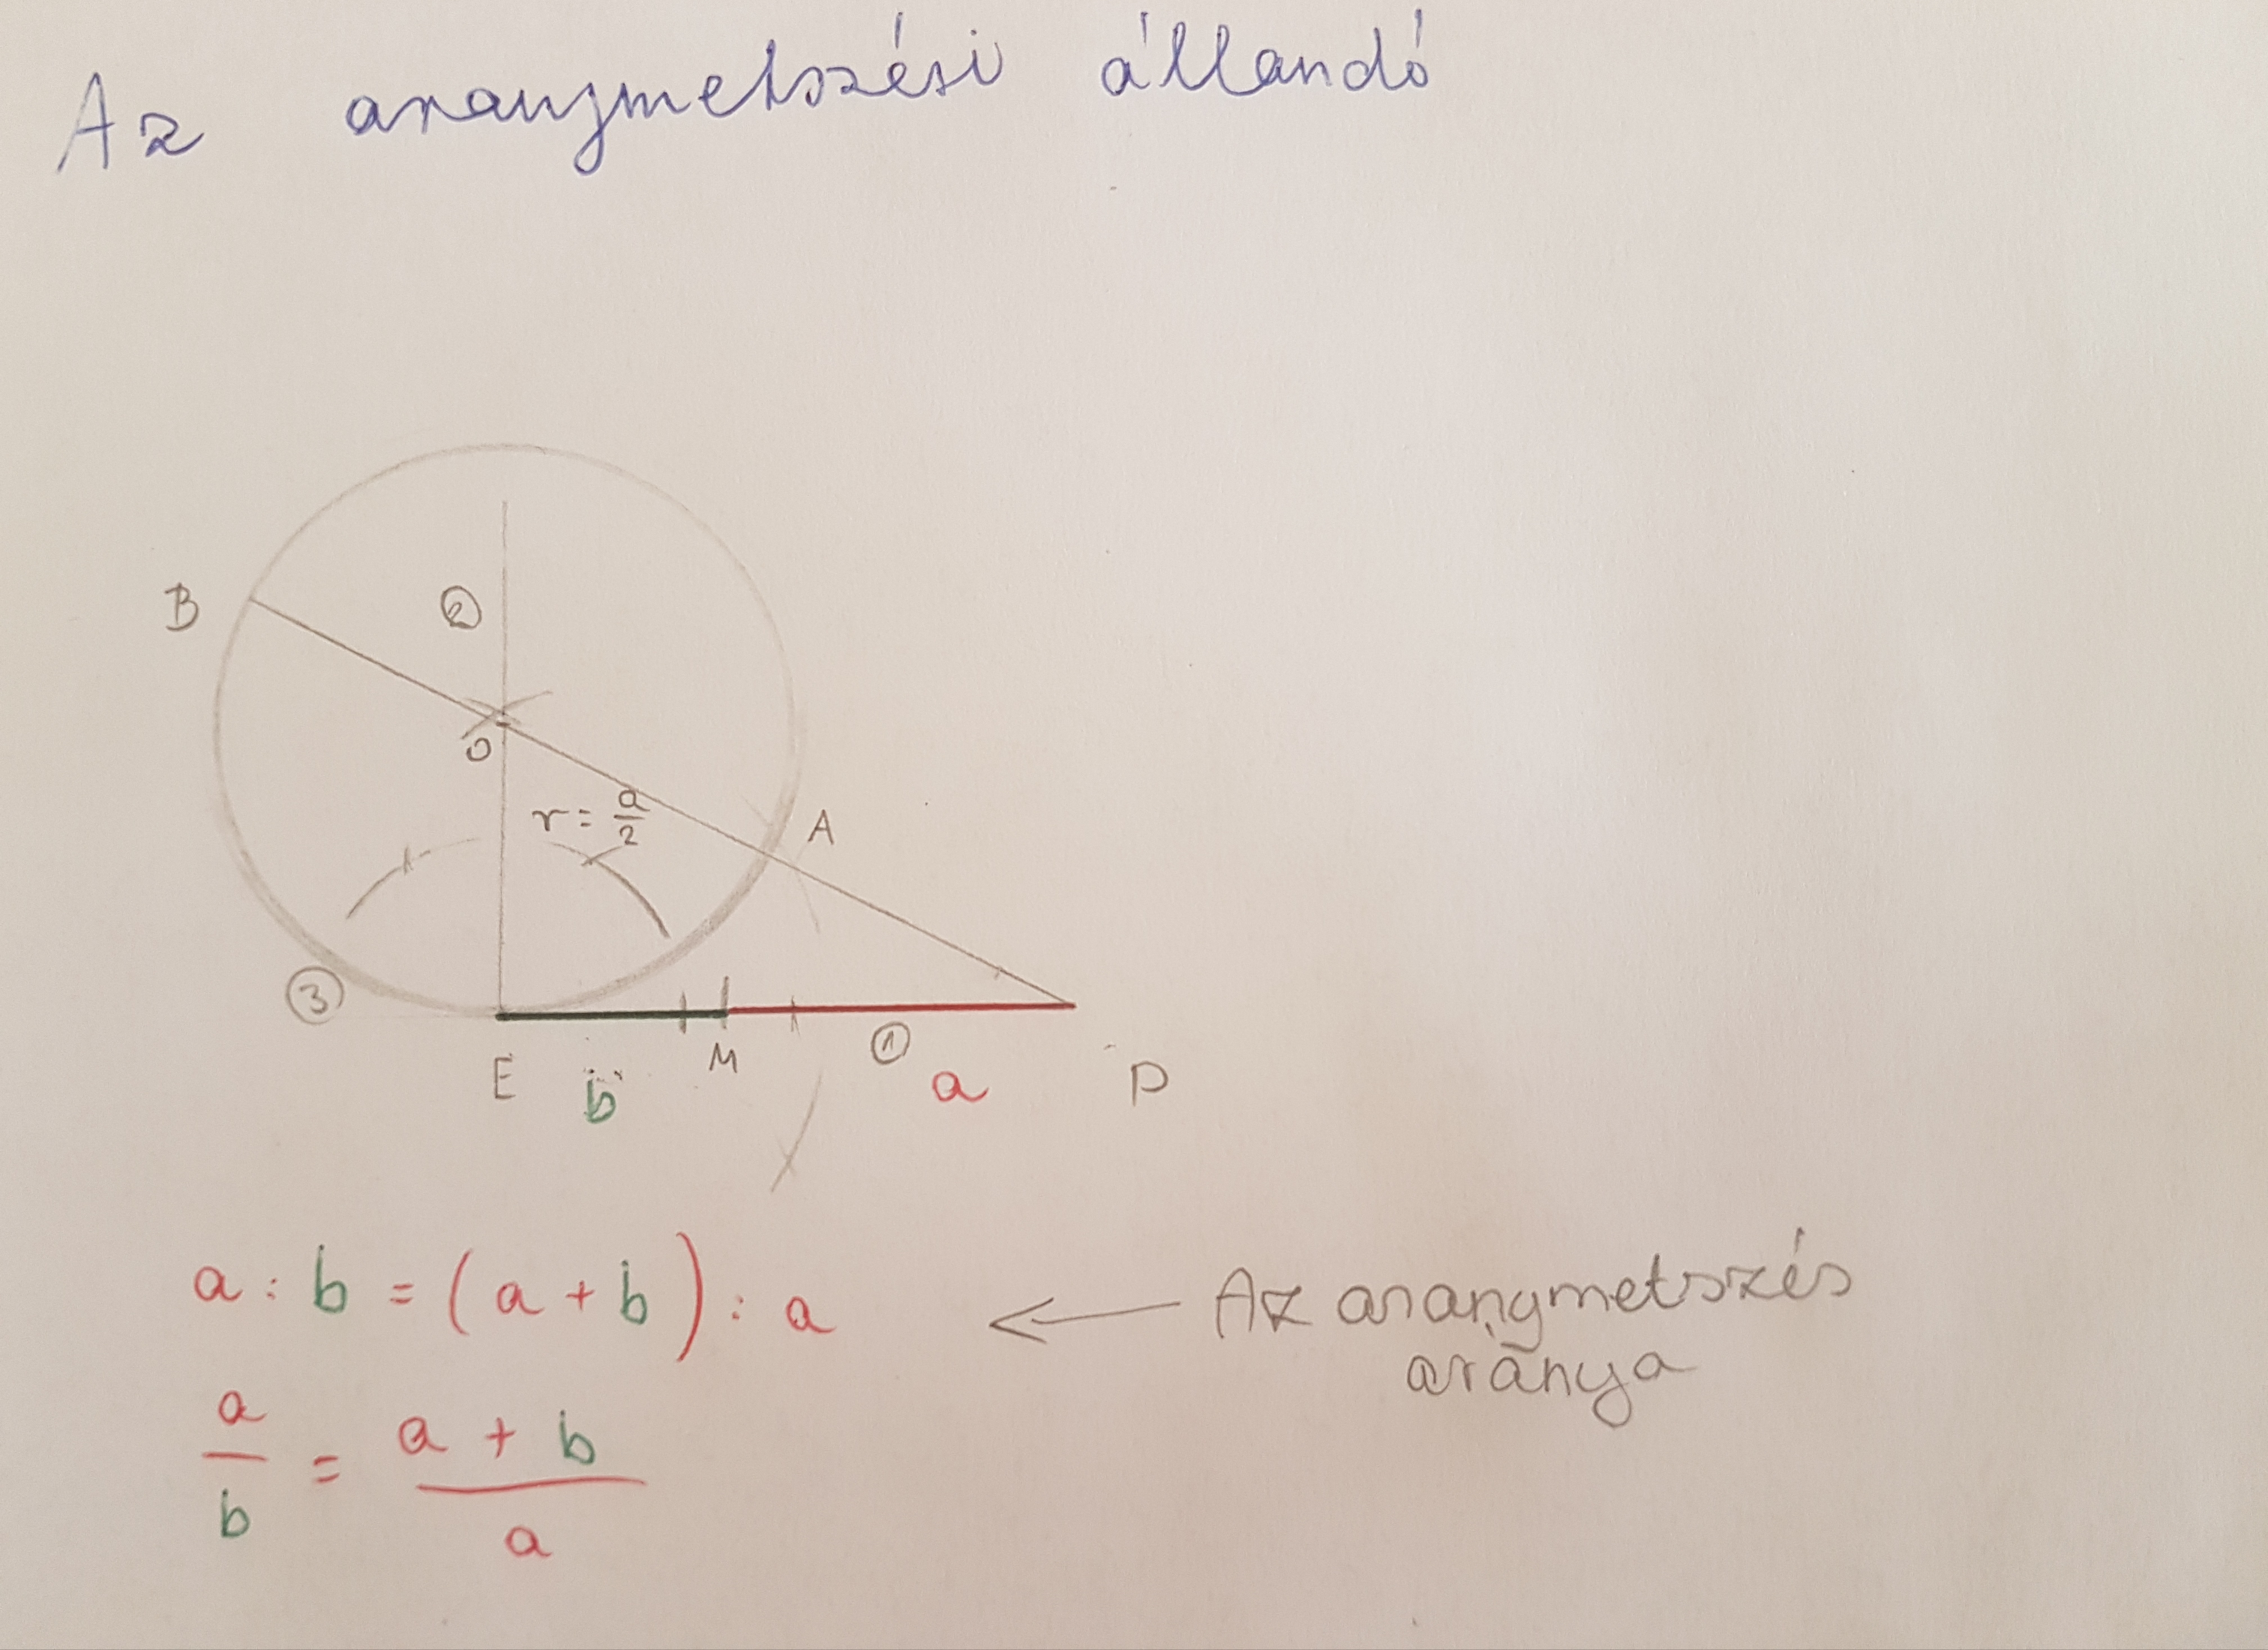 Az aranymetszési állandó
B
2
O
r = a/2
A
3
E
b
M
1
a
P
a : b = (a + b) : a
Az aranymetszés
aránya
a/b = a + b/a